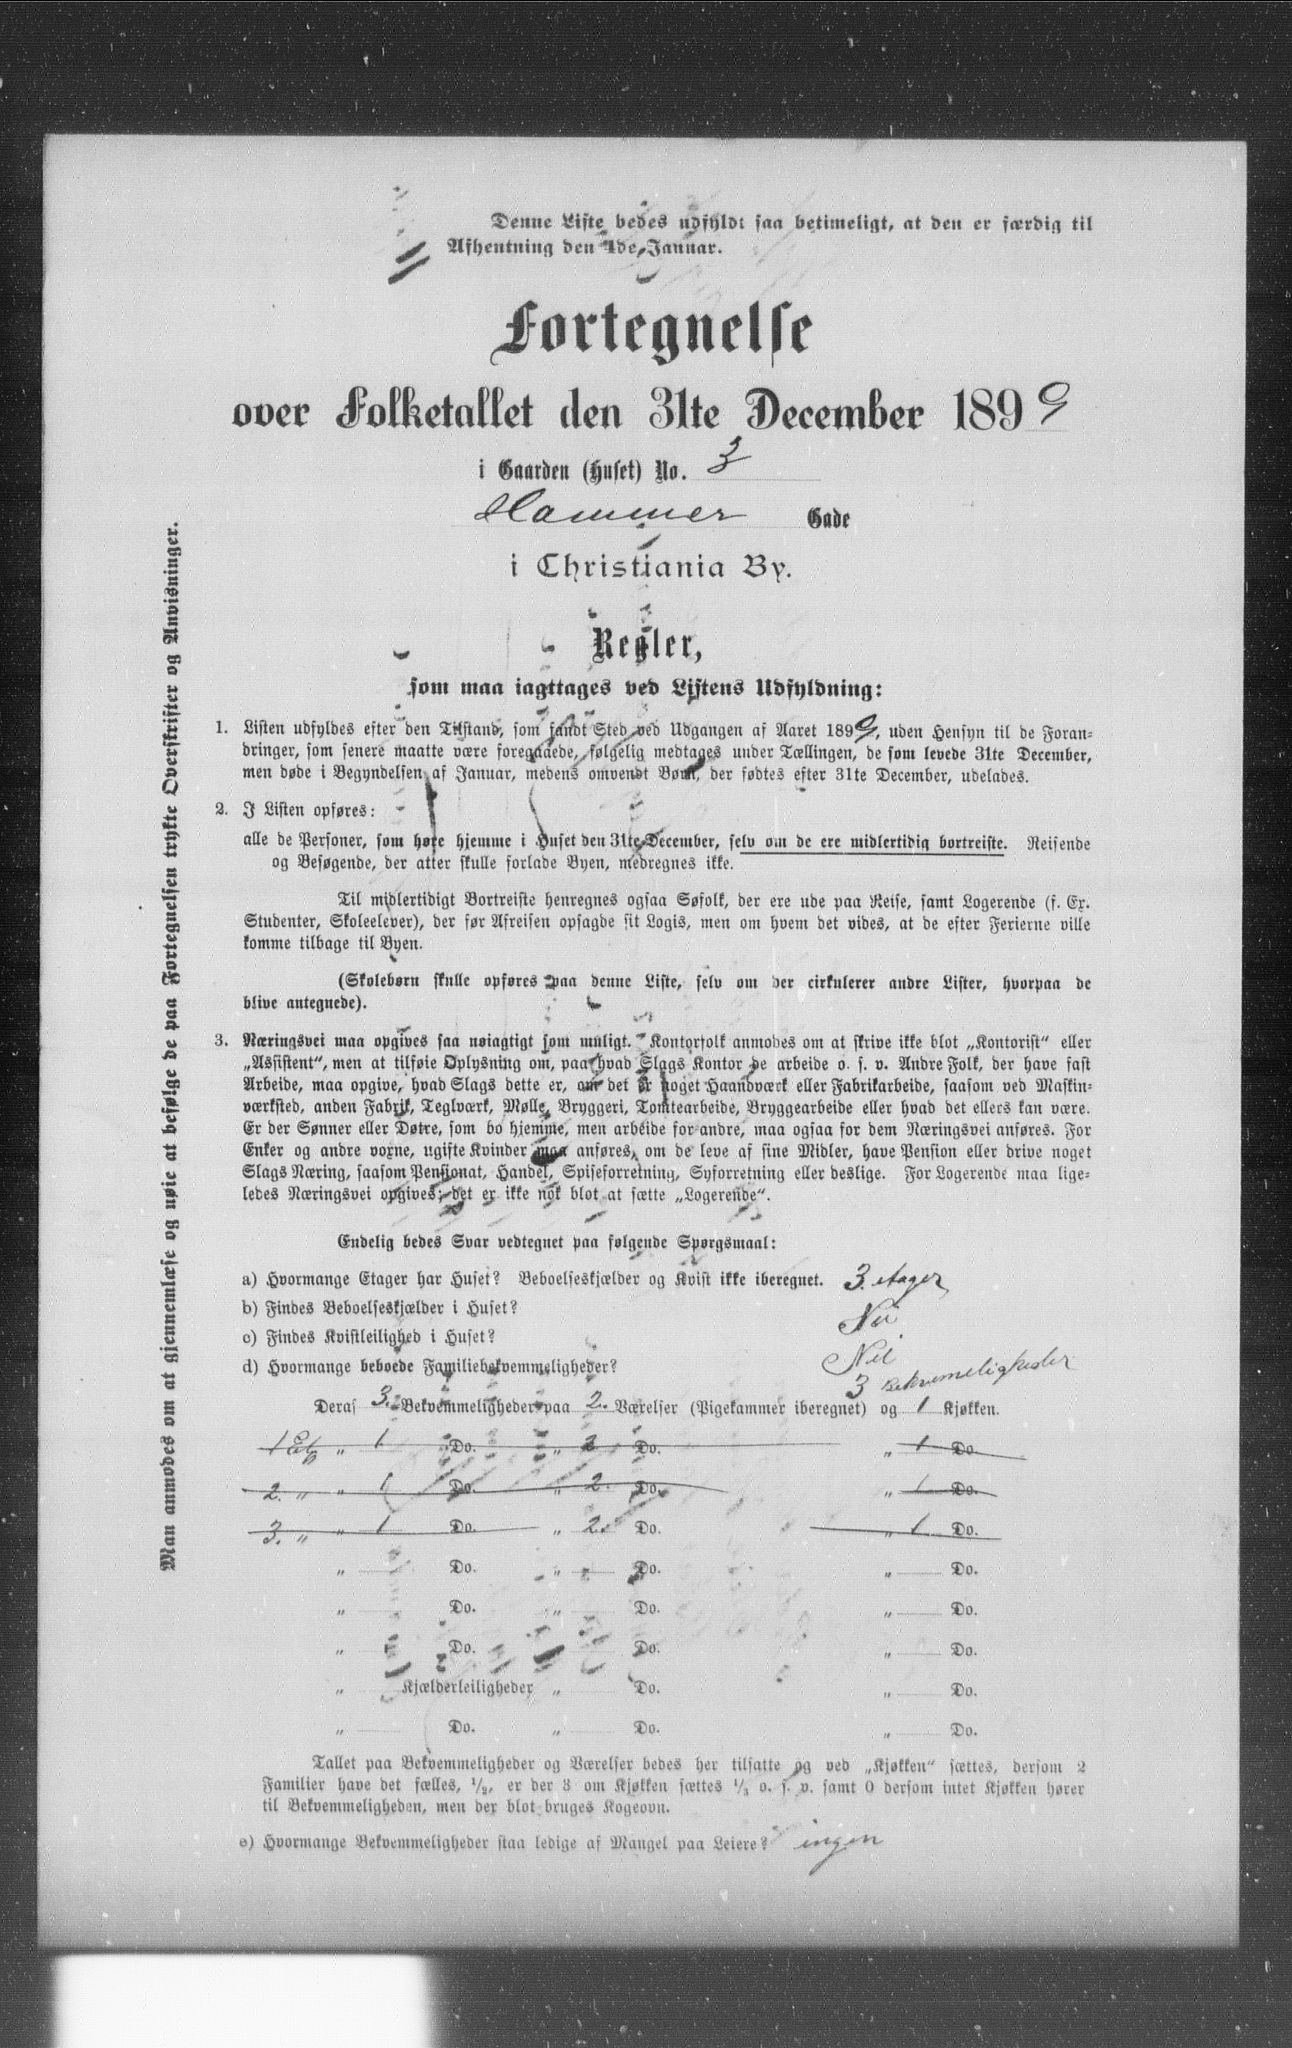 Denne Liste bedes udfyldt saa betimeligt, at den er færdig til
Afhentning den 1de Januar.
Fortegnelse
over Folketallet den 31te December 1899
i Gaarden (Huset) No. 3
Hammer Gade
i Christiania By.
Regler,
som maa iagttages ved Listens Udfyldning:
1. Listen udfyldes efter den Tilstand, som fandt Sted ved Udgangen af Aaret 1899, uden Hensyn til de Foran-
dringer, som senere maatte være foregaaede, følgelig medtages under Tællingen, de som levede 31te December,
men døde i Begyndelsen af Januar, medens omvendt Børn, der fødtes efter 31te December, udelades.
2. I Listen opføres:
alle de Personer, som høre hjemme i Huset den 31te December, selv om de ere midlertidig bortreiste. Reisende
og Besøgende, der atter skulle forlade Byen, medregnes ikke.
Til midlertidigt Bortreiste henregnes ogsaa Søfolk, der ere ude paa Reise, samt Logerende (f. Ex.
Studenter, Skoleelever), der før Afreisen opsagde sit Logis, men om hvem det vides, at de efter Ferierne ville
komme tilbage til Byen.
(Skolebørn skulle opføres paa denne Liste, selv om der cirkulerer andre Lister, hvorpaa de
blive antegnede).
3. Næringsvei maa opgives saa nøiagtigt som muligt. Kontorfolk anmodes om at skrive ikke blot „Kontorist" eller
„Assistent", men at tilføie Oplysning om, paa hvad Slags Kontor de arbeide o. s. v. Andre Folk, der have fast
Arbeide, maa opgive, hvad Slags dette er, om det er noget Haandværk eller Fabrikarbeide, saasom ved Maskin-
værksted, anden Fabrik, Teglværk, Mølle, Bryggeri, Tomtearbeide, Bryggearbeide eller hvad det ellers kan være.
Er der Sønner eller Døtre, som bo hjemme, men arbeide for andre, maa ogsaa for dem Næringsvei anføres. For
Enker og andre voxne, ugifte Kvinder maa anføres, om de leve af sine Midler, have Pension eller drive noget
Slags Næring, saasom Pensionat, Handel, Spiseforretning, Syforretning eller deslige. For Logerende maa lige-
ledes Næringsvei opgives; det er ikke nok blot at sætte „Logerende".
Endelig bedes Svar vedtegnet paa følgende Spørgsmaal:
a) Hvormange Etager har Huset? Beboelseskjælder og Kvist ikke iberegnet. 3. etager
b) Findes Beboelseskjælder i Huset? Nei
c) Findes Kvistleilighed i Huset? Nei
d) Hvormange beboede Familiebekvemmeligheder? 3 Bekvemeligheder
Deraf 3. Bekvemmeligheder paa 2. Værelser (Pigekammer iberegnet) og 1 Kjøkken.
1 Etg „ 1 Do. „ 2 Do. „ 1 Do.
2. „ „ 1 Do. „ 2. Do. „ 1 Do.
3. „ „ 1 Do. „ 2. Do. „ 1 Do.
„ Do. „ Do. „ Do.
„ Do. „ Do. „ Do.
„ Do. „ Do. „ Do.
„ Kjælderleiligheder „ Do. „ Do.
„ Do. „ Do. „ Do.
Tallet paa Bekvemmeligheder og Værelser bedes her tilsatte og ved „Kjøkken" sættes, dersom 2
Familier have det fælles, 1/2, er der 3 om Kjøkken sættes 1/3 o. s. v. samt 0 dersom intet Kjøkken hører
til Bekvemmeligheden, men der blot bruges Kogeovn.
e) Hvormange Bekvemmeligheder staa ledige af Mangel paa Leiere? ingen
Man anmodes om at gjennemlæse og nøie at befølge de paa Fortegnelsen trykte Overskrifter og Anvisninger.